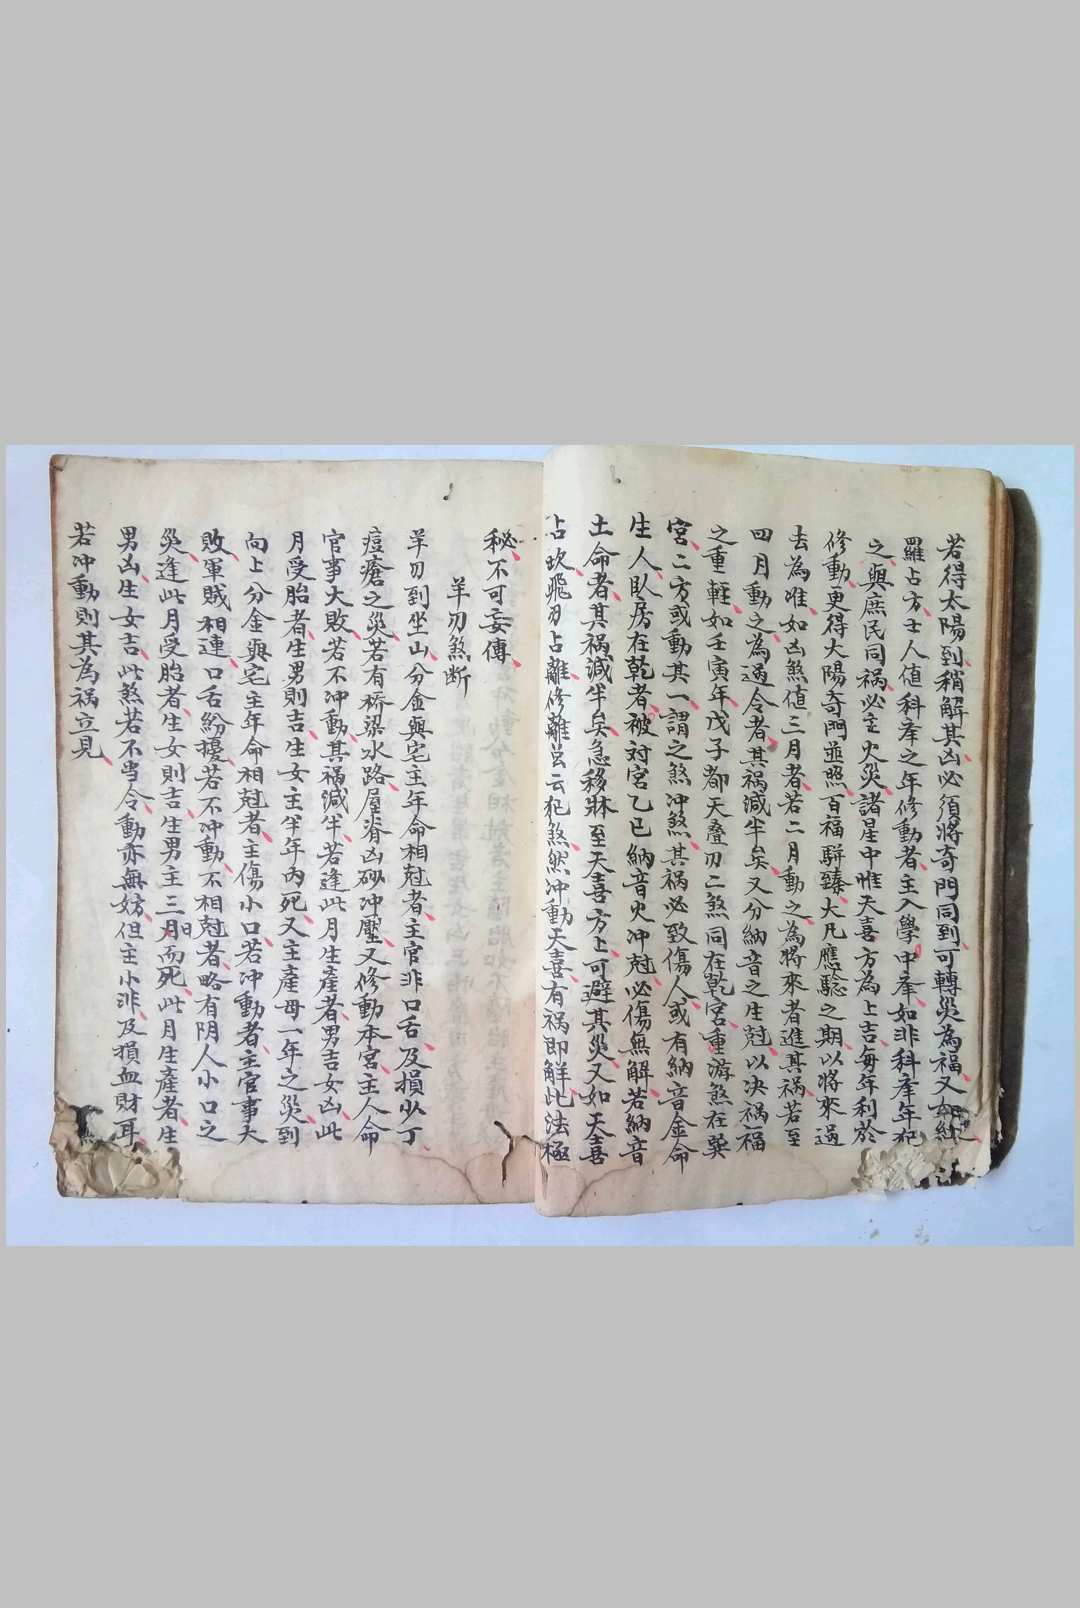 若得太陽到稍解其凶必須將奇門同到可轉災為福又如紅
羅占方士人值科牽之年修動者主入學中牽如非科牽年犯
之與庶民同禍必主火災諸星中惟天喜方為上吉每年利於
修動更得大陽奇門並照百福騈臻大凡應驗之期以將來過
去為唯如凶煞值三月者若二月動之為將來者進其禍若至
四月動之為過令者其禍減半矣又分納音之生尅以决禍福
之重輕如壬寅年戊子都天叠刃二煞同在乾宮重游煞在巽
宮二方或動其一謂之煞冲煞其禍必致傷人或有納音金命
生人臥房在乾者被対宮乙巳納音火冲尅必傷無解若納音
土命者其禍減半矣急移牀至天喜方上可避其災又如天喜
占坎飛刃占離修離曰云犯煞然冲動天喜有禍即解此法極
秘不可妄傳
羊刃煞断
羊刃到坐山分金與宅主年命相尅者主官非口舌及損少丁
痘瘡之災若有桥梁水路屋脊凶砂冲壓又修動本宮主人命
官事大敗若不冲動其禍減半若逢此月生產者男吉女凶此
月受胎者生男則吉生女主半年內死又主產母一年之災到
向上分金與宅主年命相尅者主傷小口若冲動者主官事大
敗軍賊相連口舌紛擾若不冲動不相尅者略有阴人小口之
災逢此月受胎者生女則吉生男主三月而死此月生產者生
男凶生女吉此煞若不当令動亦無妨但主小非及損血財耳
若冲動則其為禍立見